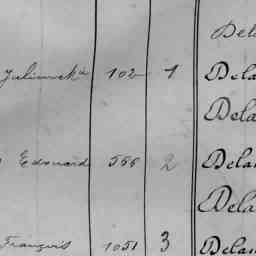 Dela
102 1 Dela
Dela
Edouard 566 2 Dela
Dela
François 1051 3 Dela